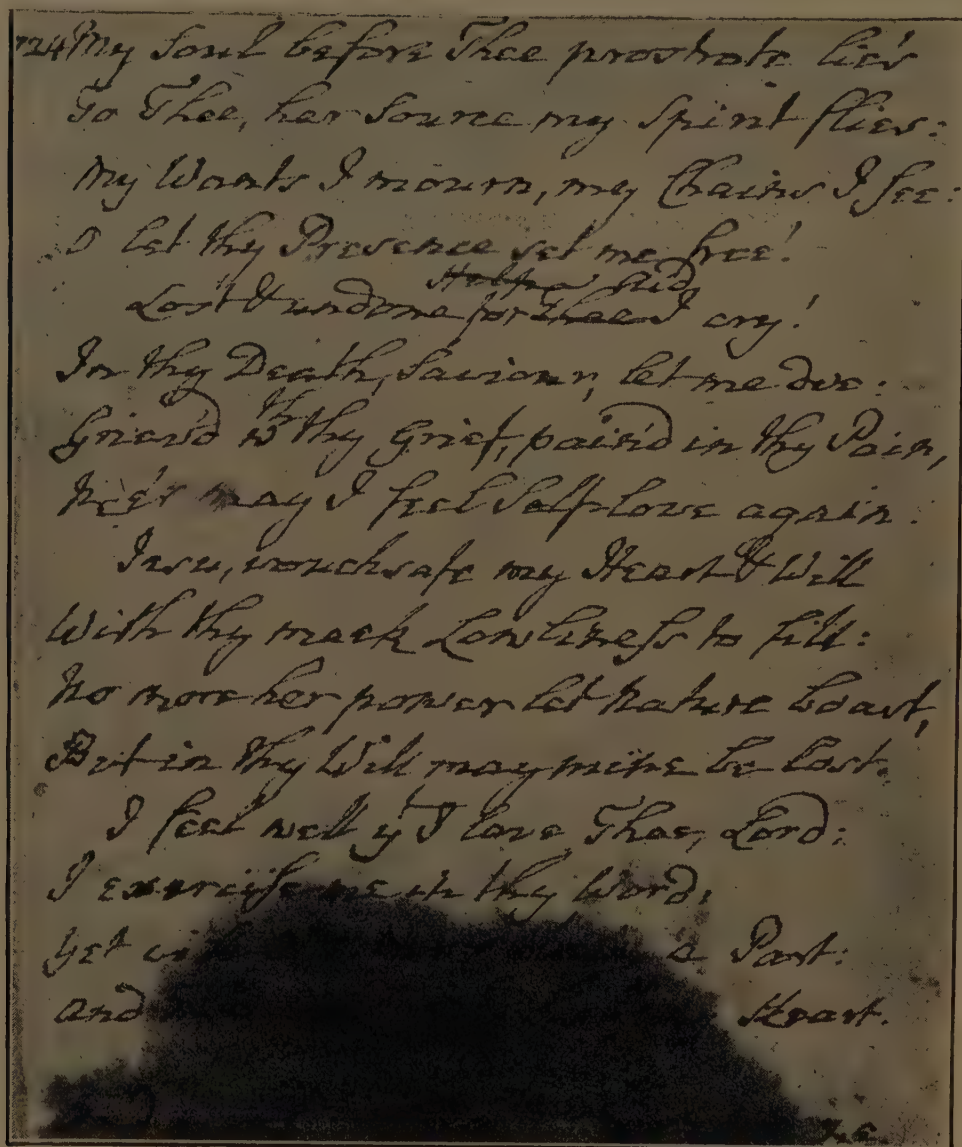 724 My Soul before Thee prostrate lies
To Thee, her Source my Spirit flies:
My Wants I mourn, my Chains I see:
O let thy Presence set me free!
Help and
Lost & undone for Thee I cry!
In thy Death, Saviour, let me die:
th
Griev'd w thy Grief, pain'd in thy Pain,
Ne'er may I feel Self-love again.
Jesu, vouchsafe my Heart & Will
With thy meek Lowliness to fill:
No more her power let Nature boast,
But in thy Will may mine be lost.
I feel well yt I love Thee, Lord:
I exercise me in thy Word;
Yet a Part:
and Heart.